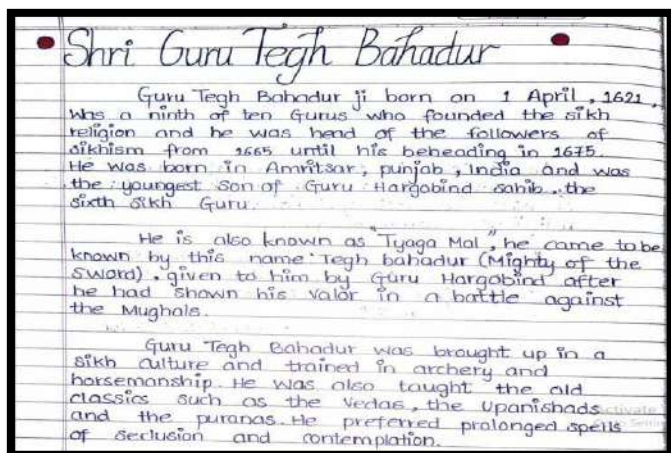 Shri Guru Tegh Bahadur
Guru Tegh Bahadur ji born on 1 April, 1621,
was a ninth of ten Gurus who founded the sikh
religion and he was head of the followers of
sikhism from 1665 until his beheading in 1675.
He was born in Amritsar, punjab, India and was
the youngest son of Guru Hargobind sahib, the
sixth sikh Guru.
He is also known as "Tyaga Mal", he came to be
known by this name Tegh bahadur (Mighty of the
sword), given to him by Guru Hargobind after
he had shown his valor in a battle against
the Mughals.
Guru Tegh Bahadur was brought up in a
sikh culture and trained in archery and
horsemanship. He was also taught the old
classics such as the vedas, the upanishads
and the puranas. He preferred prolonged spells
of seclusion and contemplation.